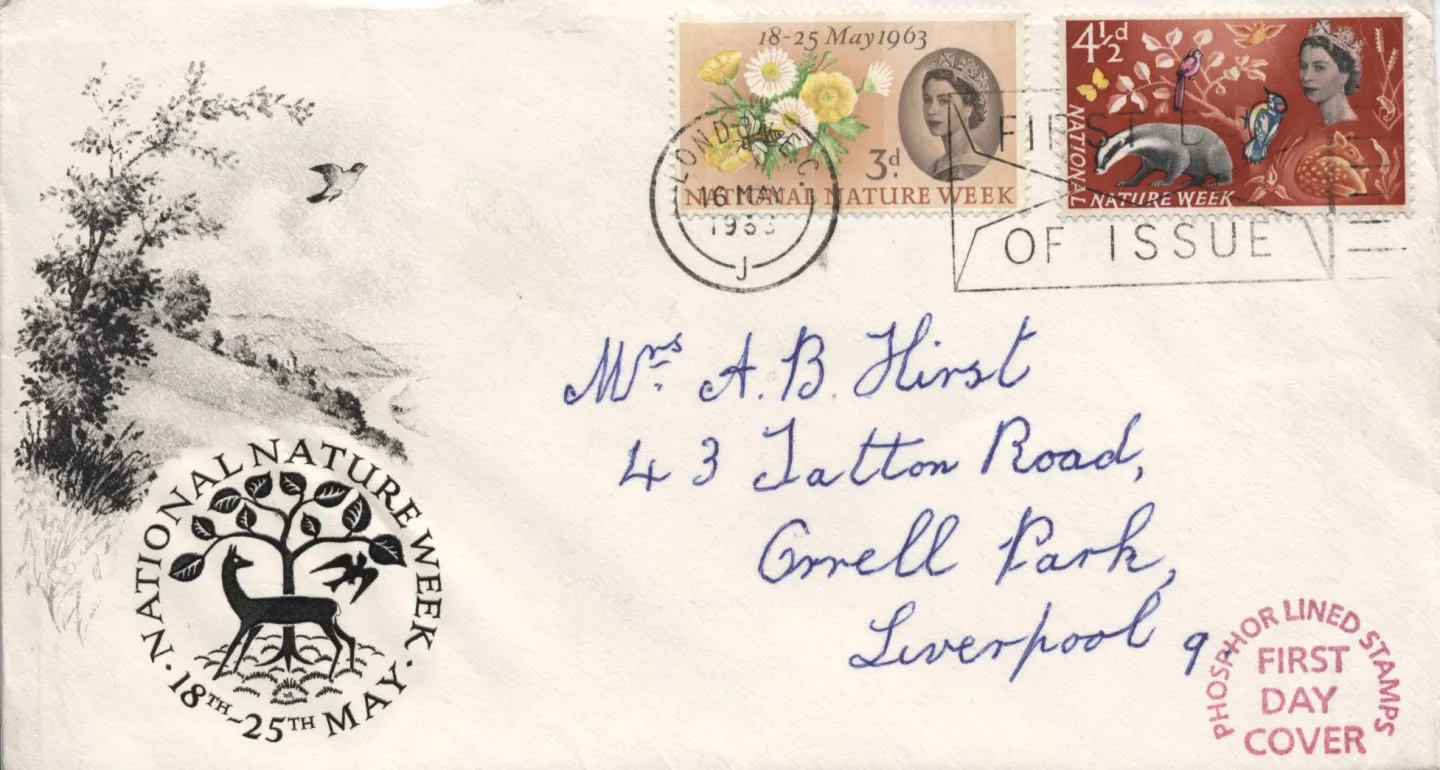 18-25 May 1963
3d.
NATIONAL NATURE WEEK
4½d
NATIONAL
NATURE WEEK
LONDON E.C.
16 MAY
1963
J
FIRST DAY
OF ISSUE
Mrs A. B. Hirst
43 Tatton Road,
Orrell Park,
Liverpool 9.
NATIONAL NATURE WEEK
· 18TH-25TH MAY ·
PHOSPHOR LINED STAMPS
FIRST
DAY
COVER